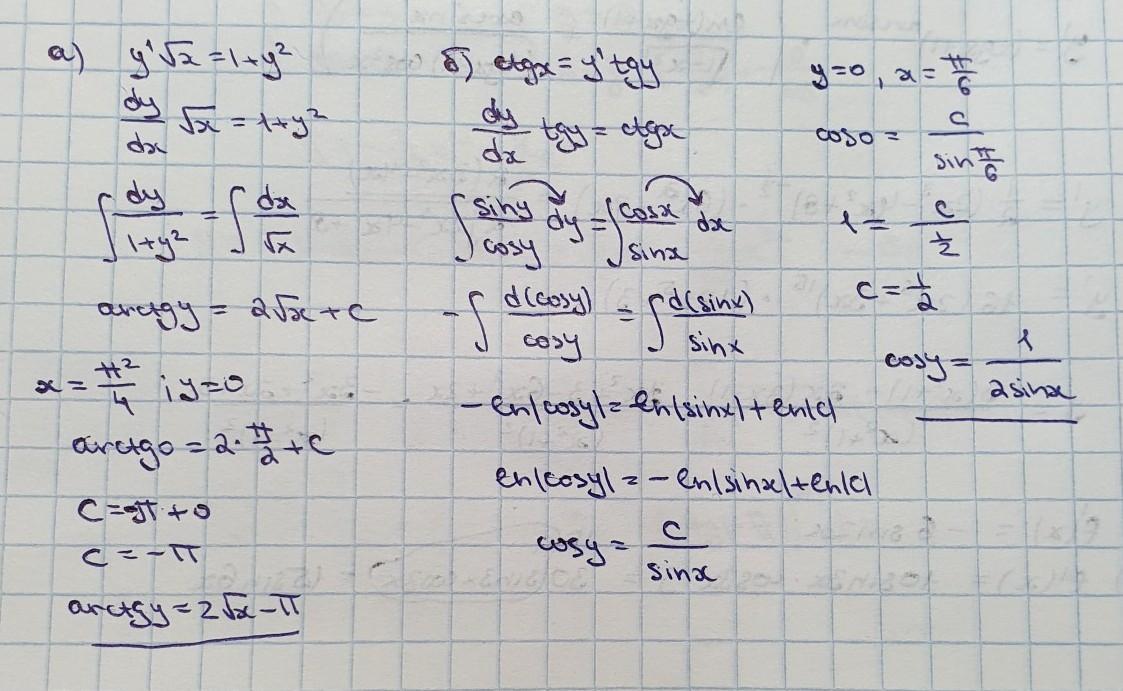 а) y'√x = 1+y²
dy/dx √x = 1+y²
∫ dy/(1+y²) = ∫ dx/√x
arctgy = 2√x + c
x = π²/4 ; y=0
arctg0 = 2·π/2 + c
c = -π + 0
c = -π
arctgy = 2√x - π
б) ctgx = y'tgy
dy/dx tgy = ctgx
∫ siny/cosy dy = ∫ cosx/sinx dx
-∫ d(cosy)/cosy = ∫ d(sinx)/sinx
-ln|cosy| = ln|sinx| + ln|c|
ln|cosy| = -ln|sinx| + ln|c|
cosy = c/sinx
y=0, x = π/6
cos0 = c/sin π/6
1 = c/(1/2)
c = 1/2
cosy = 1/(2sinx)